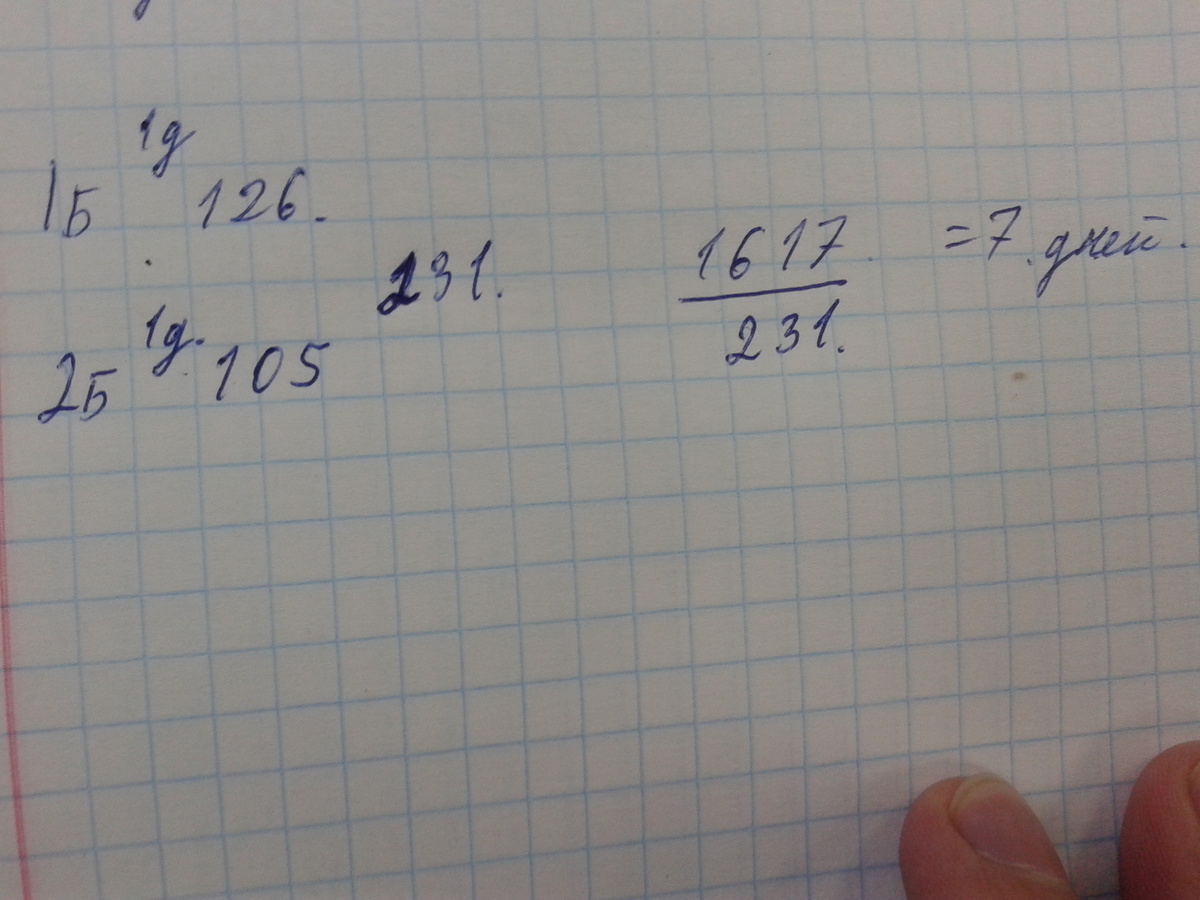 1д
1Б 126.
231.
1617 = 7 дней.
231.
1д.
2Б 105